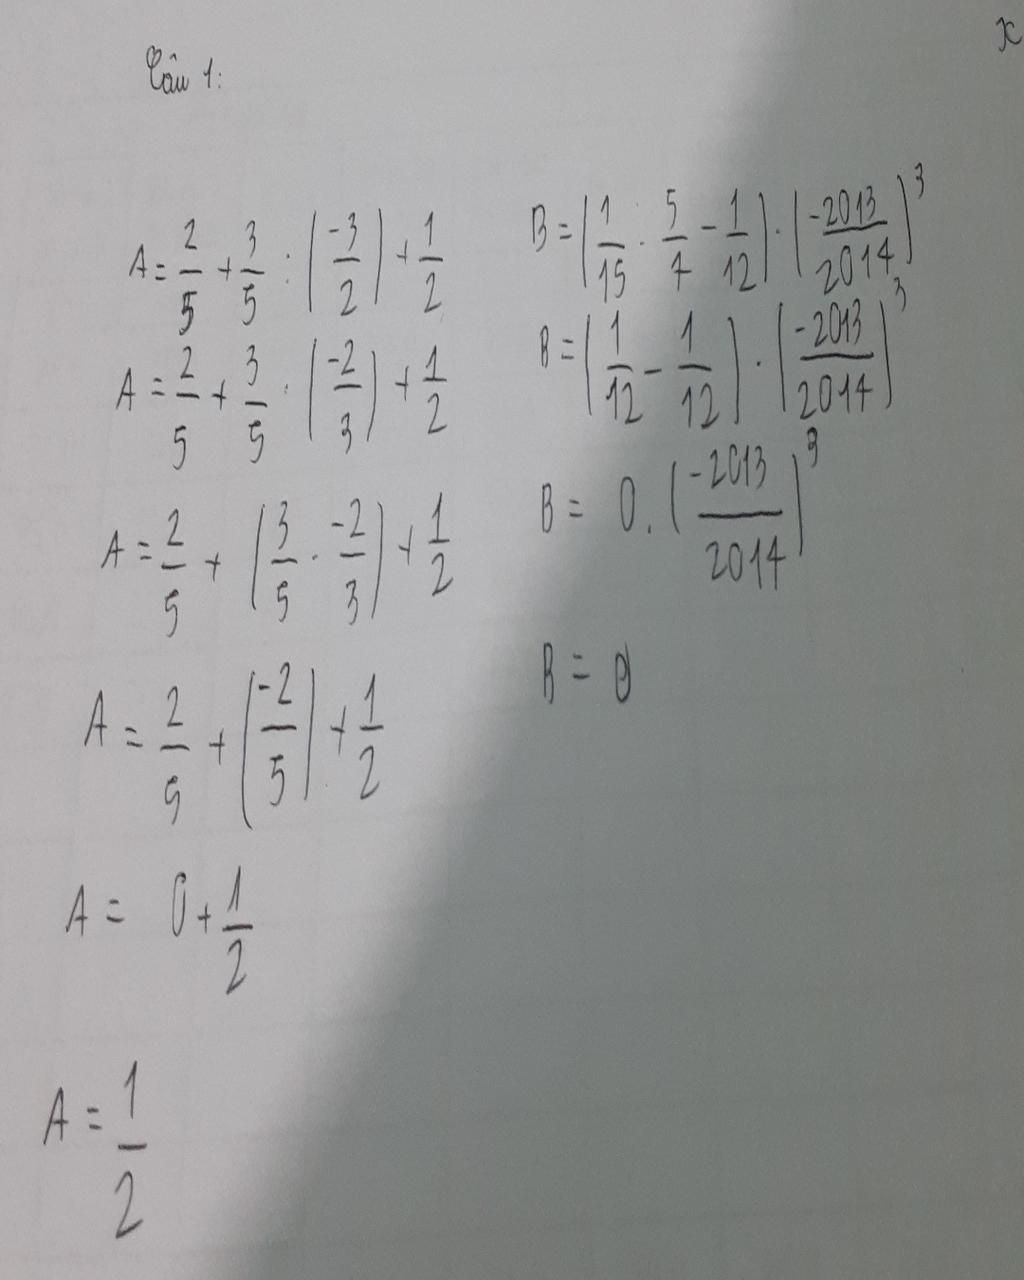 Câu 1:
A = 2/5 + 3/5 : (-3/2) + 1/2
A = 2/5 + 3/5 . (-2/3) + 1/2
A = 2/5 + (3/5 . -2/3) + 1/2
A = 2/5 + (-2/5) + 1/2
A = 0 + 1/2
A = 1/2
B = (1/15 . 5/7 - 1/12) . (-2013/2014)^3
B = (1/12 - 1/12) . (-2013/2014)^3
B = 0 . (-2013/2014)^3
B = 0